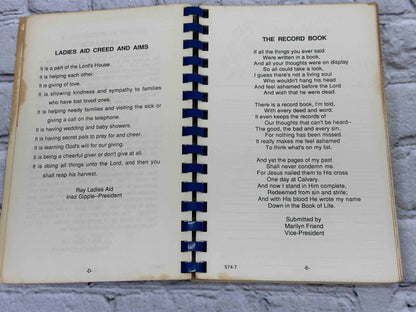 LADIES AID CREED AND AIMS
It is a part of the Lord's House.
It is helping each other.
It is giving of love.
It is showing kindness and sympathy to families
who have lost loved ones.
It is helping needy families and visiting the sick or
giving a call on the telephone.
It is having wedding and baby showers.
It is having secret pals to pray for and cheer.
It is learning God's will for our giving.
It is being a cheerful giver or don't give at all.
It is doing all things unto the Lord, and then you
shall reap his harvest.
Ray Ladies Aid
Inez Gipple–President
-D-
THE RECORD BOOK
If all the things you ever said
Were written in a book,
And all your thoughts were on display
So all could take a look,
I guess there's not a living soul
Who wouldn't hang his head
And feel ashamed before the Lord
And wish that he were dead.
There is a record book, I'm told,
With every deed and word.
It even keeps the records of
Our thoughts that can't be heard–
The good, the bad and every sin,
For nothing has been missed.
It really makes me feel ashamed
To think what's on my list.
And yet the pages of my past
Shall never condemn me.
For Jesus nailed them to His cross
One day at Calvary.
And now I stand in Him complete,
Redeemed from sin and strife;
And with His blood He wrote my name
Down in the Book of Life.
Submitted by
Marilyn Friend
Vice-President
574-7
-E-